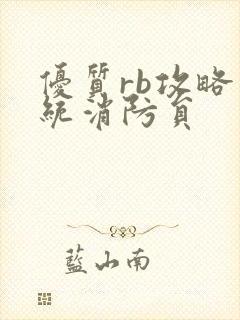 優質rb攻略
統消防員
藍山南